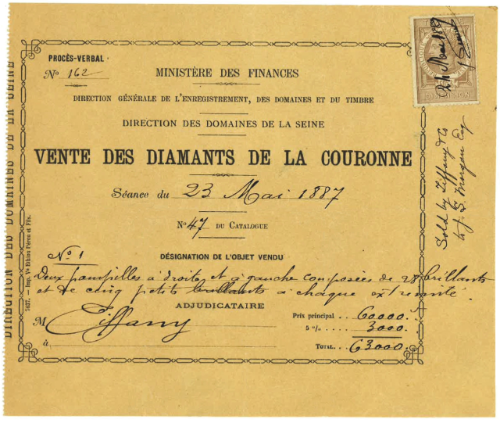 PROCÈS-VERBAL
No 162
MINISTÈRE DES FINANCES
DIRECTION GÉNÉRALE DE L'ENREGISTREMENT, DES DOMAINES ET DU TIMBRE
DIRECTION DES DOMAINES DE LA SEINE
VENTE DES DIAMANTS DE LA COURONNE
Séance du 23 Mai 1887
No 47 DU CATALOGUE
No 1
DÉSIGNATION DE L'OBJET VENDU
Deux pampilles à droite et à gauche composées de 28 brillants
et de cinq petits brillants à chaque extrémité.
ADJUDICATAIRE
M Tiffany
à
Prix principal ... 60000.
5 % ... 3000.
TOTAL ... 63000.
DIRECTION DES DOMAINES DE LA SEINE
24 Mai 1887
Sold by Tiffany & Co
to J. S. Morgan Esq